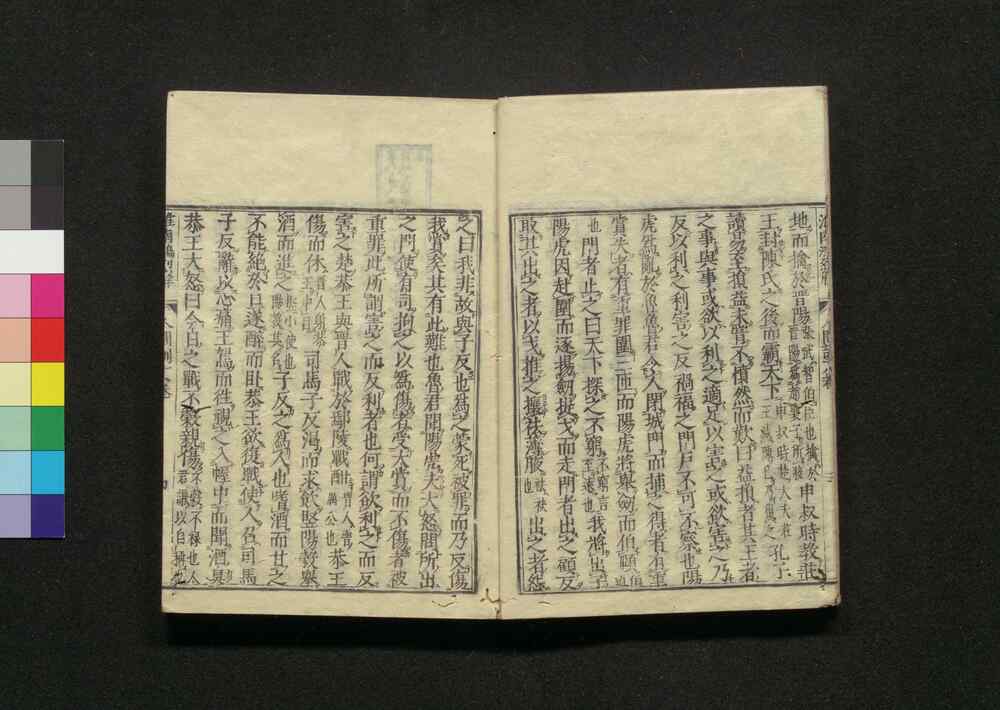 地而擒於晉陽張武智伯臣也擒於晉陽爲趙襄子所殺申叔時教莊
王封陳氏之後而霸天下申叔時楚大夫莊王滅陳已乃復之孔子
讀易至損益未嘗不憤然而歎曰益損者其王者
之事與事或欲以利之適足以害之或欲害之乃
反以利之利害之反禍福之門戶不可不察也陽
虎爲亂於魯魯君令人閉城門而捕之得者有重
賞失者有重罪圍三匝而陽虎將舉劍而伯頤
也門者止之曰天下探之不窮我將出子
陽虎因赴圍而逐揚劍提戈而走門者出之顧反
取其出之者以戈推之攘祛薄腋出之者怨
之曰我非故與子反也爲之蒙死被罪而乃反傷
我宜矣其有此難也魯君聞陽虎失大怒問所出
之門使有司拘之以爲傷者受大賞而不傷者被
重罪此所謂害之而反利者也何謂欲利之而反
害之楚恭王與晉人戰於鄢陵戰酣恭王
傷而休司馬子反渴而求飲豎陽穀奉
酒而進之子反之爲人也嗜酒而甘之
不能絕於口遂醉而臥恭王欲復戰使人召司馬
子反辭以心痛王駕而往視之入幄中而聞酒臭
恭王大怒曰今日之戰不穀親傷不穀不祿也人君謙以自稱也